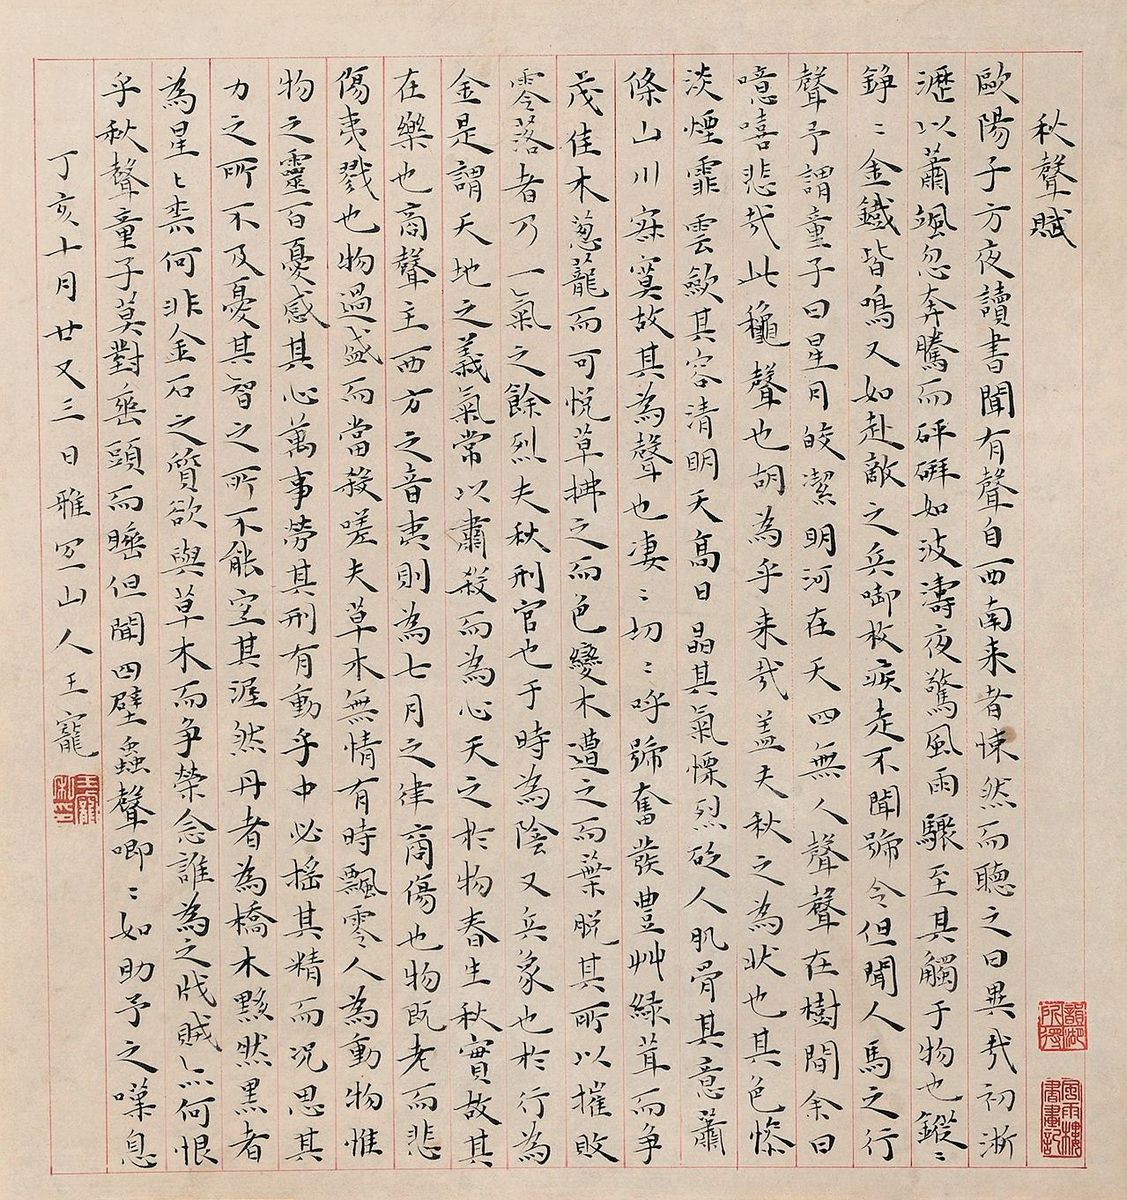 秋聲賦
歐陽子方夜讀書聞有聲自西南来者悚然而聽之曰異哉初淅
瀝以蕭颯忽奔騰而砰湃如波濤夜驚風雨驟至其觸于物也鏦〻
錚〻金鐵皆鳴又如赴敵之兵啣枚疾走不聞號令但聞人馬之行
聲予謂童子曰星月皎潔明河在天四無人聲聲在樹間余曰
噫嘻悲哉此秋聲也胡為乎来哉盖夫秋之為狀也其色慘
淡煙霏雲歛其容清明天高日晶其氣慄烈砭人肌骨其意蕭
條山川寂寞故其為聲也凄〻切〻呼號奮發豊艸綠茸而争
茂佳木葱蘢而可悅草拂之而色變木遭之而葉脫其所以摧敗
零落者乃一氣之餘烈夫秋刑官也于時為陰又兵象也於行為
金是謂天地之義氣常以肅殺而為心天之於物春生秋實故其
在樂也商聲主西方之音夷則為七月之律商傷也物既老而悲
傷夷戮也物過盛而當殺嗟夫草木無情有時飄零人為動物惟
物之靈百憂感其心萬事勞其刑有動乎中必搖其精而况思其
力之所不及憂其智之所不能宜其渥然丹者為槁木黟然黑者
為星〻柰何非金石之質欲與草木而争榮念誰為之戕賊亦何恨
乎秋聲童子莫對垂頭而睡但聞四壁蟲聲唧〻如助予之嘆息
丁亥十月廿又三日雅宜山人王寵
王寵私印
韻湖所得
風雨樓書畫記